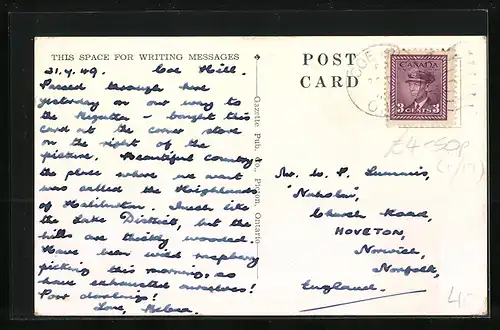 THIS SPACE FOR WRITING MESSAGES
31.7.49. Coe Hill.
Passed through here
yesterday on our way to
the Regatta - bought this
card at the corner store
on the right of the
picture. Beautiful country
the place where we went
was called the Heighlands
of Haliburton. Much like
the Lake District, but the
hills are thickly wooded.
Have been wild raspberry
picking this morning, so
have exhausted ourselves!
Poor darlings!
Love, Helena.
Gazette Pub. Co., Picton, Ontario
POST
CARD
COE
CANADA
3 CENTS 3
£4-50p
Mr. W. P.
Church Road,
HOVETON,
Norwich,
Norfolk,
England.
4/-